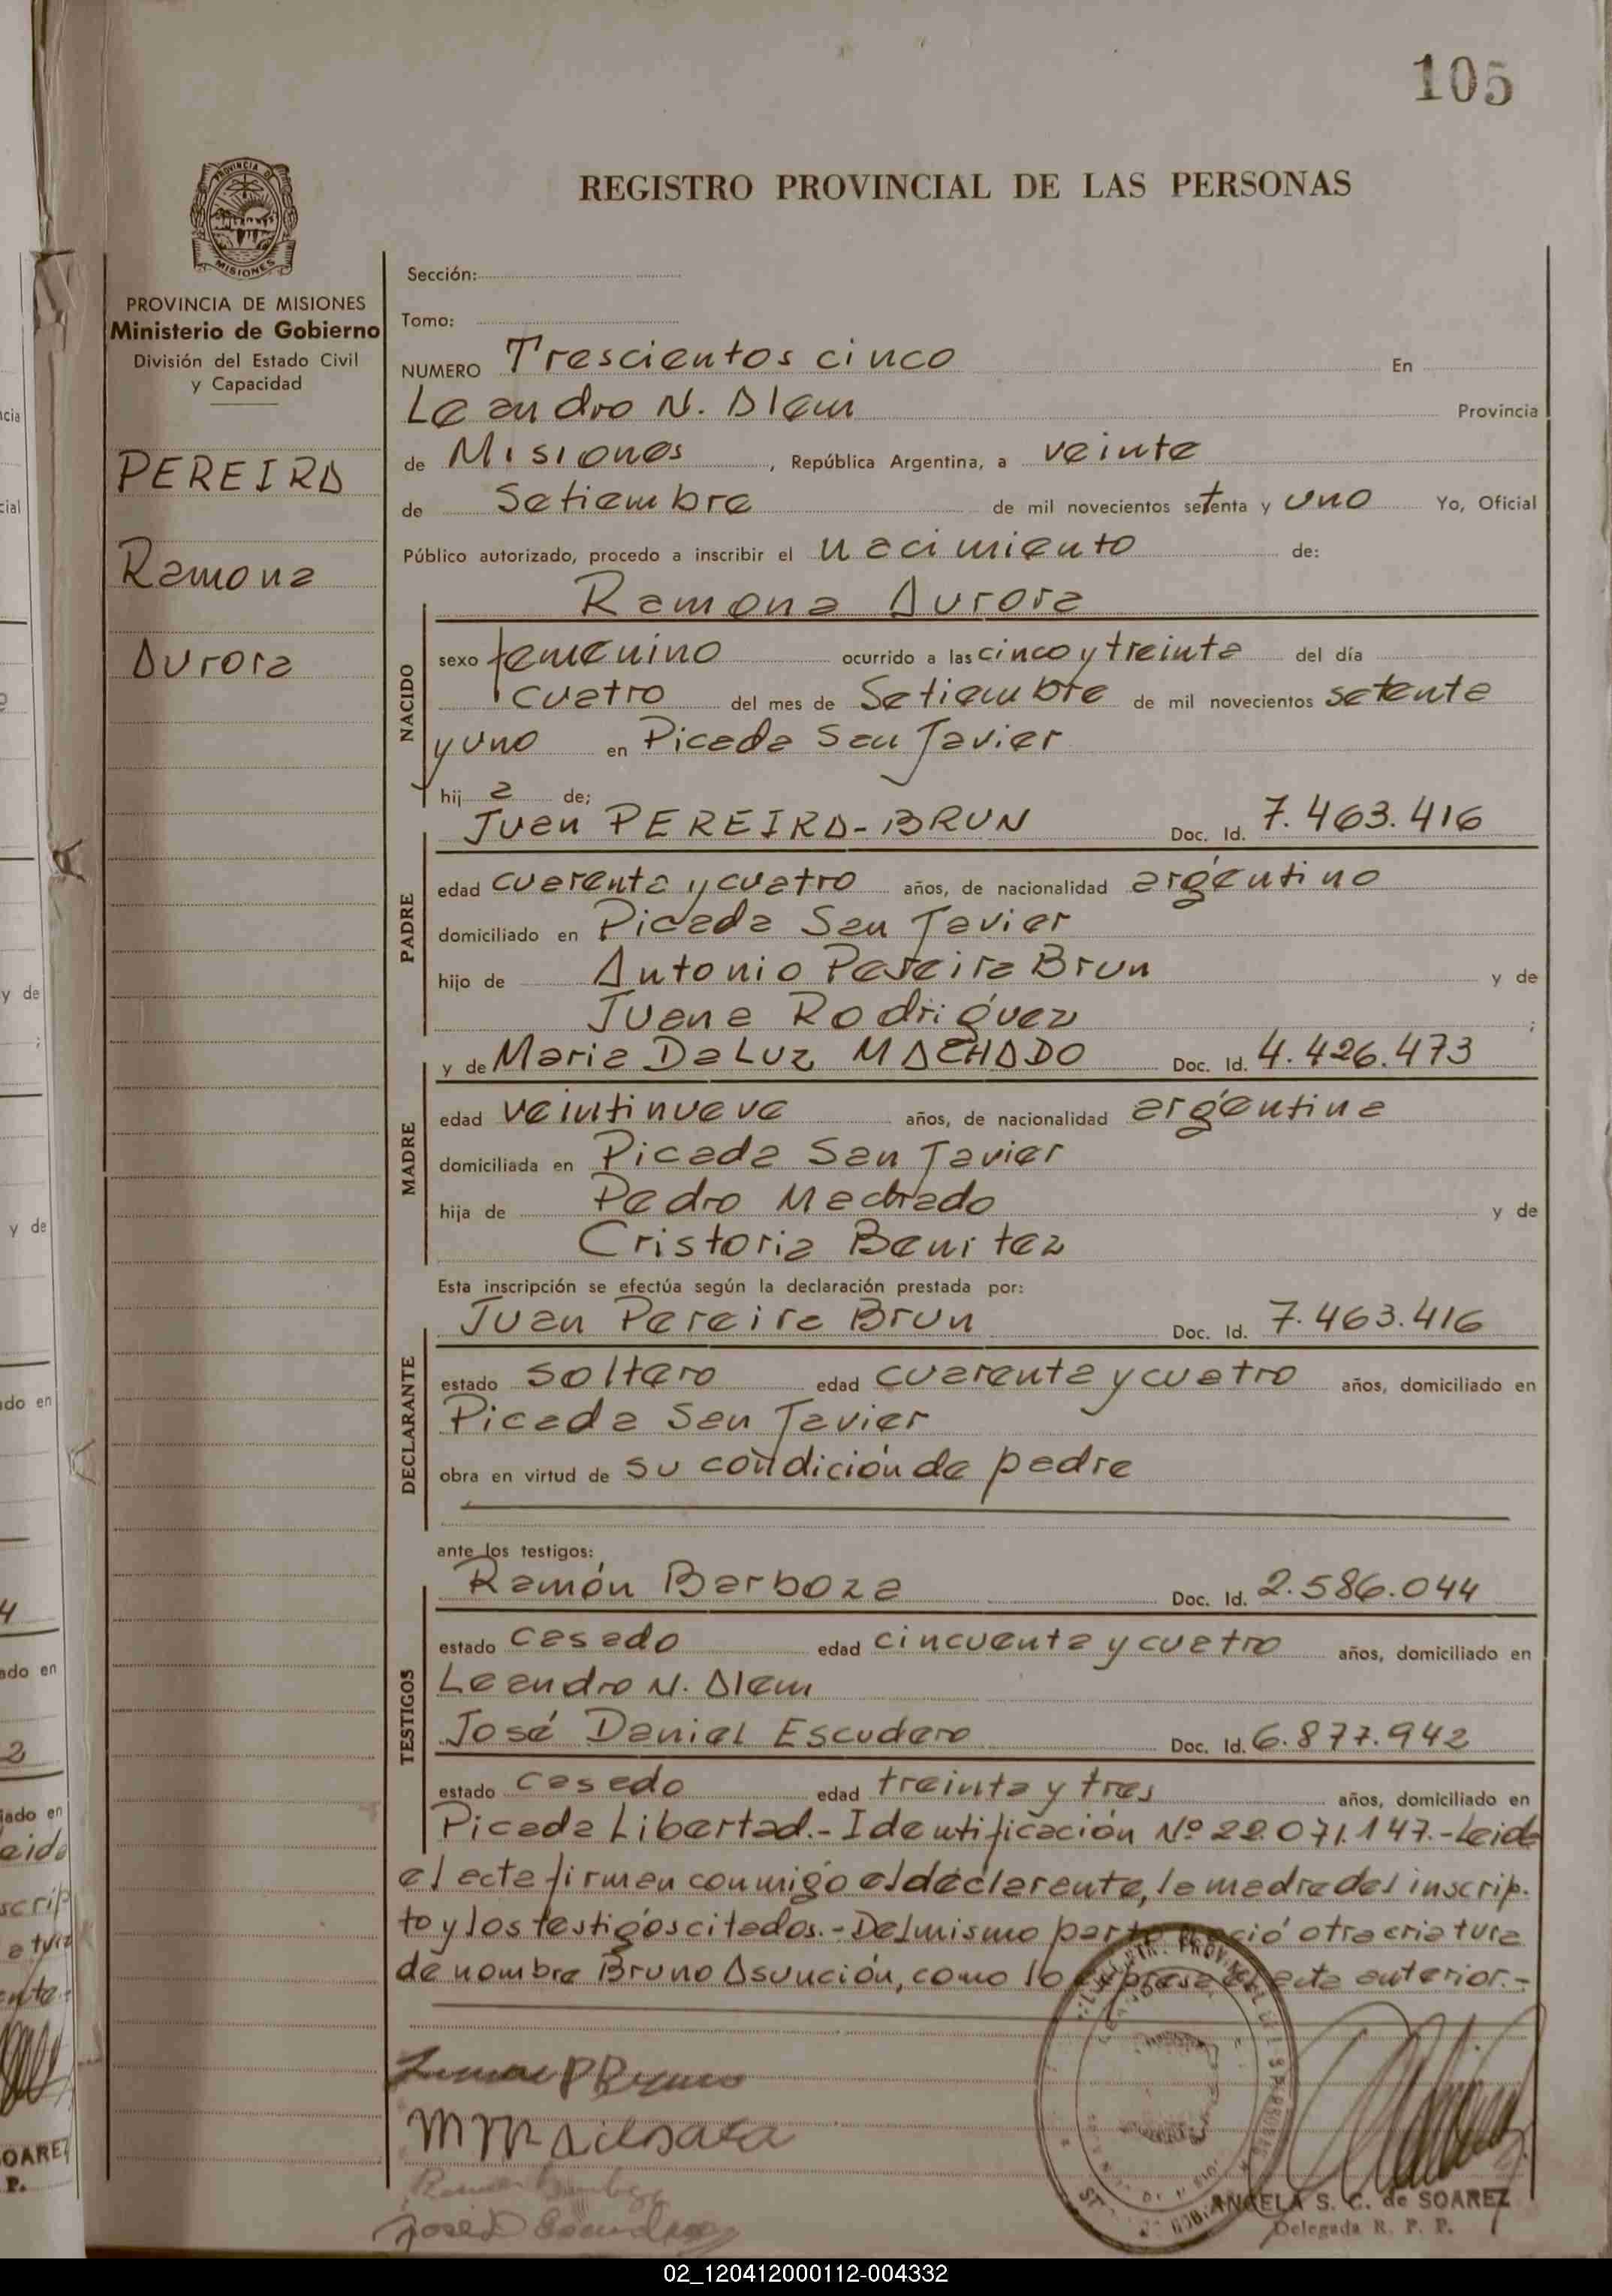 105
PROVINCIA DE
MISIONES
REGISTRO PROVINCIAL DE LAS PERSONAS
PROVINCIA DE MISIONES
Ministerio de Gobierno
División del Estado Civil
y Capacidad
PEREIRA
Ramona
Aurora
Sección:
Tomo:
NUMERO Trescientos cinco En
Leandro N. Alem Provincia
de Misiones, República Argentina, a veinte
de Setiembre de mil novecientos setenta y uno Yo, Oficial
Público autorizado, procedo a inscribir el nacimiento de:
Ramona Aurora
NACIDO
sexo femenino ocurrido a las cinco y treinta del día
cuatro del mes de Setiembre de mil novecientos setenta
y uno en Picada San Javier
hij a de;
Juan PEREIRA-BRUN Doc. Id. 7.463.416
PADRE
edad cuarenta y cuatro años, de nacionalidad argentino
domiciliado en Picada San Javier
hijo de Antonio Pereira Brun y de
Juana Rodriguez ;
y de Maria DaLuz MACHADO Doc. Id. 4.426.473
MADRE
edad veintinueve años, de nacionalidad argentina
domiciliada en Picada San Javier
hija de Pedro Machado y de
Cristoria Benitez
Esta inscripción se efectúa según la declaración prestada por:
Juan Pereira Brun Doc. Id. 7.463.416
DECLARANTE
estado soltero edad cuarenta y cuatro años, domiciliado en
Picada San Javier
obra en virtud de su condición de padre
ante los testigos:
Ramón Barboza Doc. Id. 2.586.044
TESTIGOS
estado casado edad cincuenta y cuatro años, domiciliado en
Leandro N. Alem
José Daniel Escudero Doc. Id. 6.877.942
estado casado edad treinta y tres años, domiciliado en
Picada Libertad.- Identificación Nº 22.071.147.-Leida
el acta firman conmigo el declarante, la madre del inscrip-
to y los testigos citados.- Del mismo parto nació otra criatura
de nombre Bruno Asunción, como lo expresa el acta anterior.-
ANGELA S. C. de SOAREZ
Delegada R. P. P.
02_120412000112-004332